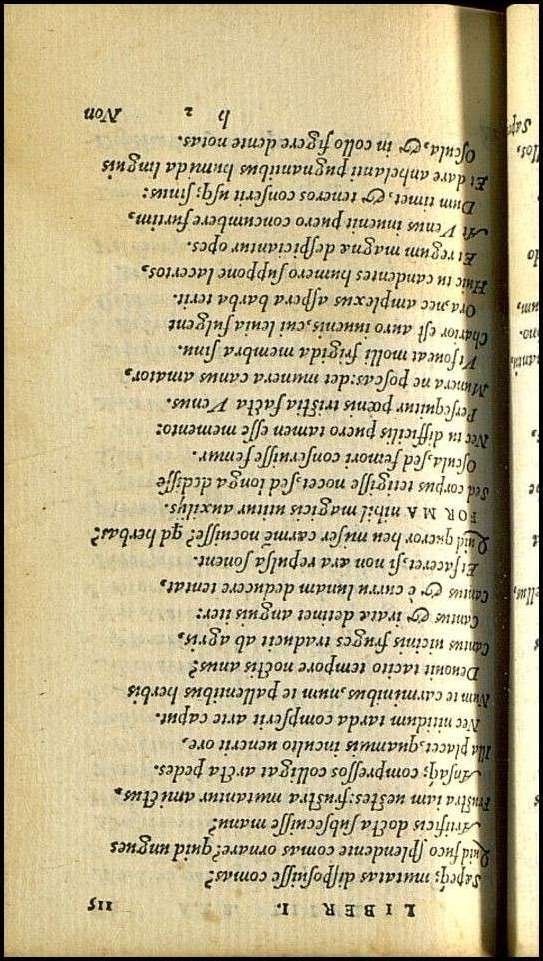 LIBER I. 115
Sæpeq; mutatas diſpoſuiſſe comas?
Quid fuco ſplendente comas ornare? quid ungues
Artificis docta ſubſecuiſſe manu?
Fruſtra iam ueſtes: fruſtra mutantur amictus,
Anſaq; compreſſos colligat arcta pedes.
Illa placet, quamuis inculto uenerit ore,
Nec nitidum tarda compſerit arte caput.
Num te carminibus, num te pallentibus herbis
Deuouit tacito tempore noctis anus?
Cantus uicinis fruges traducit ab agris,
Cantus & iratæ detinet anguis iter:
Cantus & è curru lunam deducere tentat,
Et faceret, ſi non æra repulſa ſonent.
Quid queror heu miſer carmẽ nocuiſſe? qd herbas?
FORMA nihil magicis utitur auxilijs.
Sed corpus tetigiſſe nocet: ſed longa dediſſe
Oſcula, ſed femori conſeruiſſe femur.
Nec tu difficilis puero tamen eſſe memento:
Perſequitur pœnis triſtia facta Venus.
Munera ne poſcas: det munera canus amator,
Vt foueat molli frigida membra ſinu.
Charior eſt auro iuuenis, cui leuia fulgent
Ora, nec amplexus aſpera barba terit.
Huic tu candentes humero ſuppone lacertos,
Et regum magnæ deſpiciantur opes.
At Venus inuenit puero concumbere furtim,
Dum timet, & teneros conſerit uſq; ſinus:
Et dare anhelanti pugnantibus humida linguis
Oſcula, & in collo figere dente notas.
h 2 Non